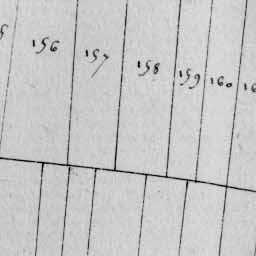 156 157 158 159 160